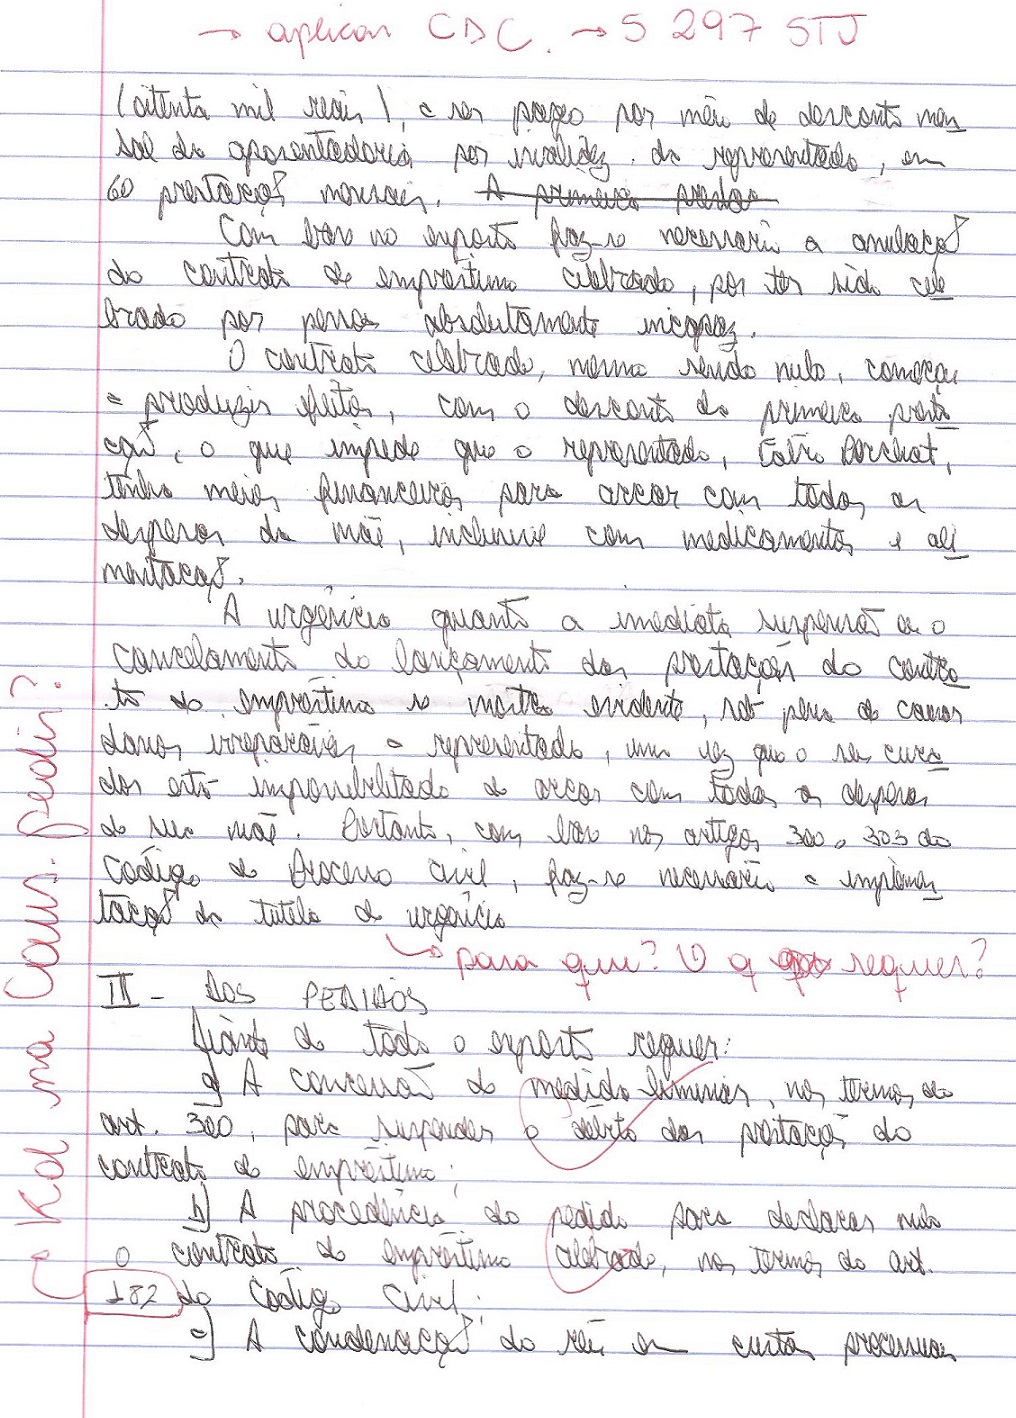 → aplicar CDC. → S 297 STJ
(oitenta mil reais), a ser pago por meio de desconto men
sal da aposentadoria por invalidez da representada, em
60 prestações mensais. A primeira presta
Com base no exposto faz-se necessario a anulação
do contrato de empréstimo celebrado, por ter sido cele
brado por pessoa absolutamente incapaz.
O contrato celebrado, mesmo sendo nulo, começou
a produzir efeitos, com o desconto da primeira presta
ção, o que impede que o representado,
tenha meios financeiros para arcar com todas as
despesas da mãe, inclusive com medicamentos e ali
mentação.
A urgência quanto a imediata suspensão ou o
cancelamento do lançamento das prestações do contra
to de empréstimo se mostra evidente, sob pena de causar
danos irreparáveis a representada, uma vez que o seu cura
dor está impossibilitado de arcar com todas as despesas
de sua mãe. Portanto, com base nos artigos 300 e 303 do
Código de Processo Civil, faz-se necessário a implemen
tação da tutela de urgência
↳ para que? O q requer?
III - DOS PEDIDOS
Diante de todo o exposto requer:
a) A concessão de medida liminar, nos termos do
art. 300, para suspender o débito das prestações do
contrato de empréstimo;
b) A procedência do pedido para declarar nulo
o contrato de empréstimo celebrado, nos termos do art.
182 do Código Civil;
c) A condenação do réu em custas processuais
↱ Kd na Caus. pedir?